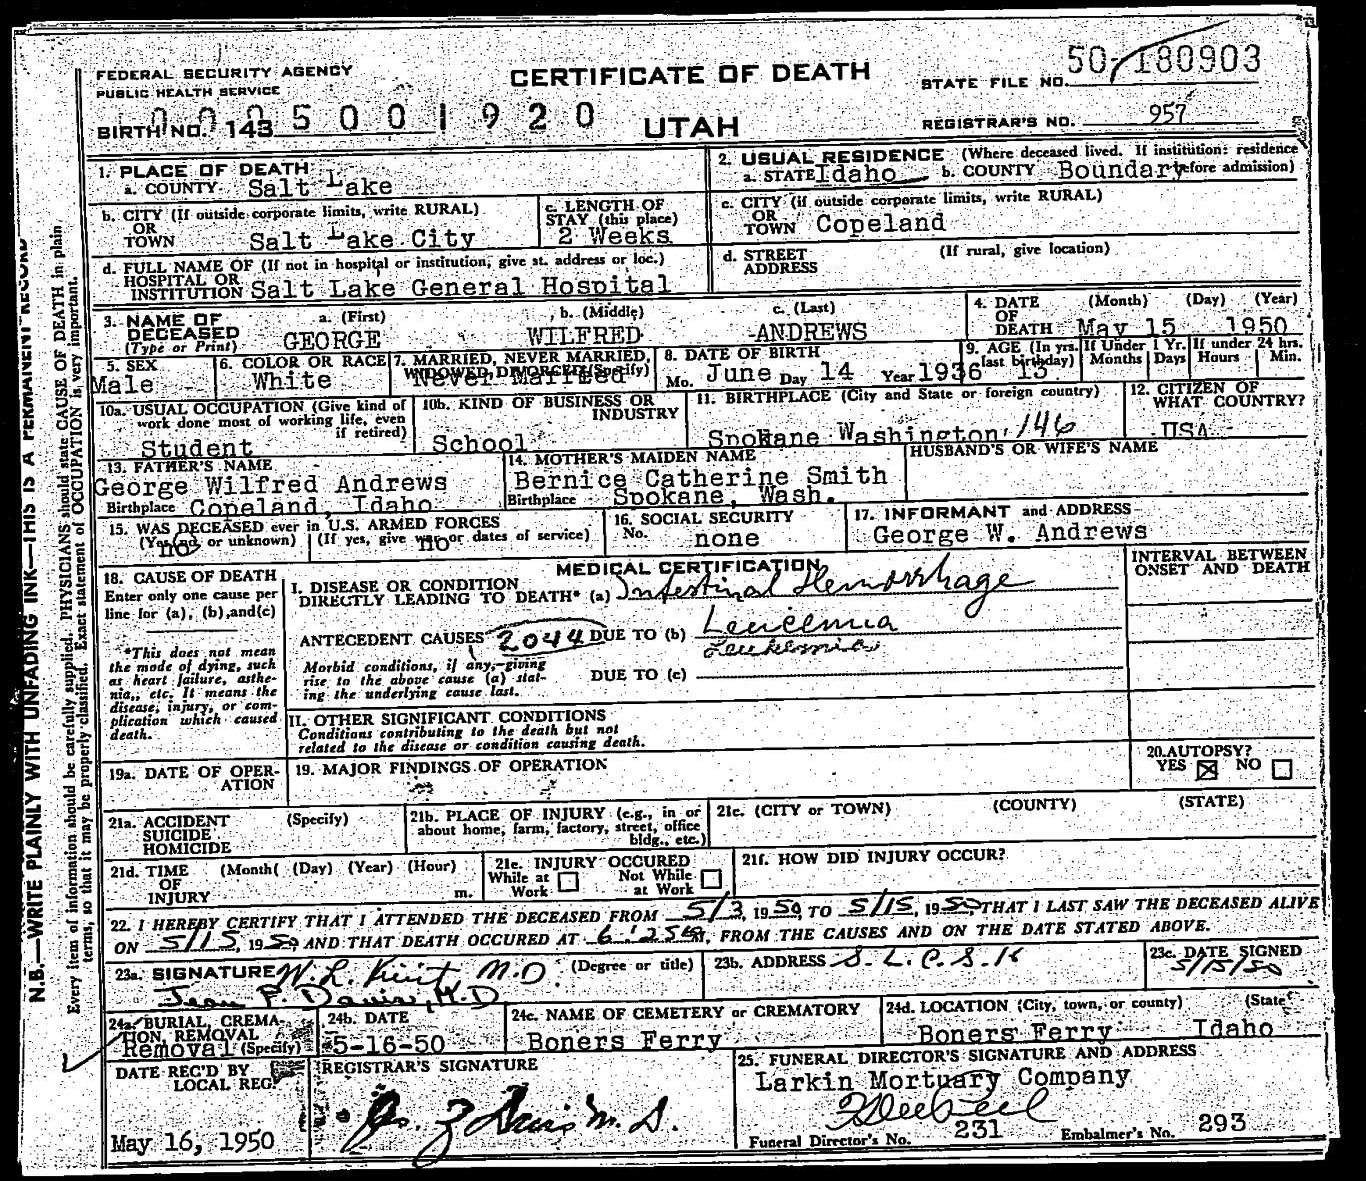 FEDERAL SECURITY AGENCY
PUBLIC HEALTH SERVICE
CERTIFICATE OF DEATH
UTAH
STATE FILE NO. 50-180903
BIRTH NO. 143 0005001920
REGISTRAR'S NO. 957
1. PLACE OF DEATH
a. COUNTY Salt Lake
2. USUAL RESIDENCE (Where deceased lived. If institution: residence before admission)
a. STATE Idaho b. COUNTY Boundary
b. CITY (If outside corporate limits, write RURAL)
OR
TOWN Salt Lake City
c. LENGTH OF
STAY (this place)
2 Weeks
c. CITY (if outside corporate limits, write RURAL)
OR
TOWN Copeland
d. FULL NAME OF (If not in hospital or institution, give st. address or loc.)
HOSPITAL OR
INSTITUTION Salt Lake General Hospital
d. STREET (If rural, give location)
ADDRESS
3. NAME OF
DECEASED
(Type or Print)
a. (First) b. (Middle) c. (Last)
GEORGE WILFRED ANDREWS
4. DATE (Month) (Day) (Year)
OF
DEATH May 15 1950
5. SEX
Male
6. COLOR OR RACE
White
7. MARRIED, NEVER MARRIED,
WIDOWED, DIVORCED (Specify)
Never Married
8. DATE OF BIRTH
Mo. June Day 14 Year 1936
9. AGE (In yrs. last birthday) 13
If Under 1 Yr. Months Days
If under 24 hrs. Hours Min.
10a. USUAL OCCUPATION (Give kind of
work done most of working life, even
if retired)
Student
10b. KIND OF BUSINESS OR
INDUSTRY
School
11. BIRTHPLACE (City and State or foreign country)
Spokane Washington 146
12. CITIZEN OF
WHAT COUNTRY?
USA
13. FATHER'S NAME
George Wilfred Andrews
Birthplace Copeland, Idaho
14. MOTHER'S MAIDEN NAME
Bernice Catherine Smith
Birthplace Spokane, Wash.
HUSBAND'S OR WIFE'S NAME
15. WAS DECEASED ever in U.S. ARMED FORCES
(Yes, no, or unknown) (If yes, give war or dates of service)
no no
16. SOCIAL SECURITY
No. none
17. INFORMANT and ADDRESS
George W. Andrews
18. CAUSE OF DEATH
Enter only one cause per
line for (a), (b), and (c)
*This does not mean
the mode of dying, such
as heart failure, asthe-
nia, etc. It means the
disease, injury, or com-
plication which caused
death.
MEDICAL CERTIFICATION
INTERVAL BETWEEN
ONSET AND DEATH
I. DISEASE OR CONDITION
DIRECTLY LEADING TO DEATH* (a) Intestinal Hemorrhage
ANTECEDENT CAUSES 2044 DUE TO (b) Leucemia
Leukemia
Morbid conditions, if any, giving
rise to the above cause (a) stat-
ing the underlying cause last.
DUE TO (c)
II. OTHER SIGNIFICANT CONDITIONS
Conditions contributing to the death but not
related to the disease or condition causing death.
19a. DATE OF OPER-
ATION
19. MAJOR FINDINGS OF OPERATION
20. AUTOPSY?
YES ☒ NO ☐
21a. ACCIDENT (Specify)
SUICIDE
HOMICIDE
21b. PLACE OF INJURY (e.g., in or
about home, farm, factory, street, office
bldg., etc.)
21c. (CITY or TOWN) (COUNTY) (STATE)
21d. TIME (Month( (Day) (Year) (Hour)
OF
INJURY m.
21e. INJURY OCCURED
While at Work ☐ Not While at Work ☐
21f. HOW DID INJURY OCCUR?
22. I HEREBY CERTIFY THAT I ATTENDED THE DECEASED FROM 5/3, 1950 TO 5/15, 1950, THAT I LAST SAW THE DECEASED ALIVE
ON 5/15, 1950 AND THAT DEATH OCCURED AT 6:25 M, FROM THE CAUSES AND ON THE DATE STATED ABOVE.
23a. SIGNATURE W. L. M.D. (Degree or title)
Jean F. Davis, M.D
23b. ADDRESS
23c. DATE SIGNED
5/15/50
24a. BURIAL, CREMA-
TION, REMOVAL
Removal (Specify)
24b. DATE
5-16-50
24c. NAME OF CEMETERY or CREMATORY
Boners Ferry
24d. LOCATION (City, town, or county) (State
Boners Ferry Idaho
DATE REC'D BY
LOCAL REG.
May 16, 1950
REGISTRAR'S SIGNATURE
M. D.
25. FUNERAL DIRECTOR'S SIGNATURE AND ADDRESS
Larkin Mortuary Company
Funeral Director's No. 231 Embalmer's No. 293
N.B.—WRITE PLAINLY WITH UNFADING INK—THIS IS A PERMANENT RECORD
Every item of information should be carefully supplied. PHYSICIANS should state CAUSE OF DEATH in plain
terms, so that it may be properly classified. Exact statement of OCCUPATION is very important.